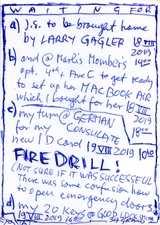 WAITING FOR
a) J.S. to be brought home
by LARRY GAGLER 18 VIII
2019
b) and @ Merlis Members
opt. 4th Ave C to get ready
to set up her MACBOOK AIR
which I bought for her
c) my turn @ GERMAN
for my CONSULATE
new ID card 19 VIII 2019
FIRE DRILL!
(NOT SURE IF IT WAS SUCCESSFUL
There was some confusion how
to open emergency doors)
d) my 20 keys @ GOOD
19 VIII 2019